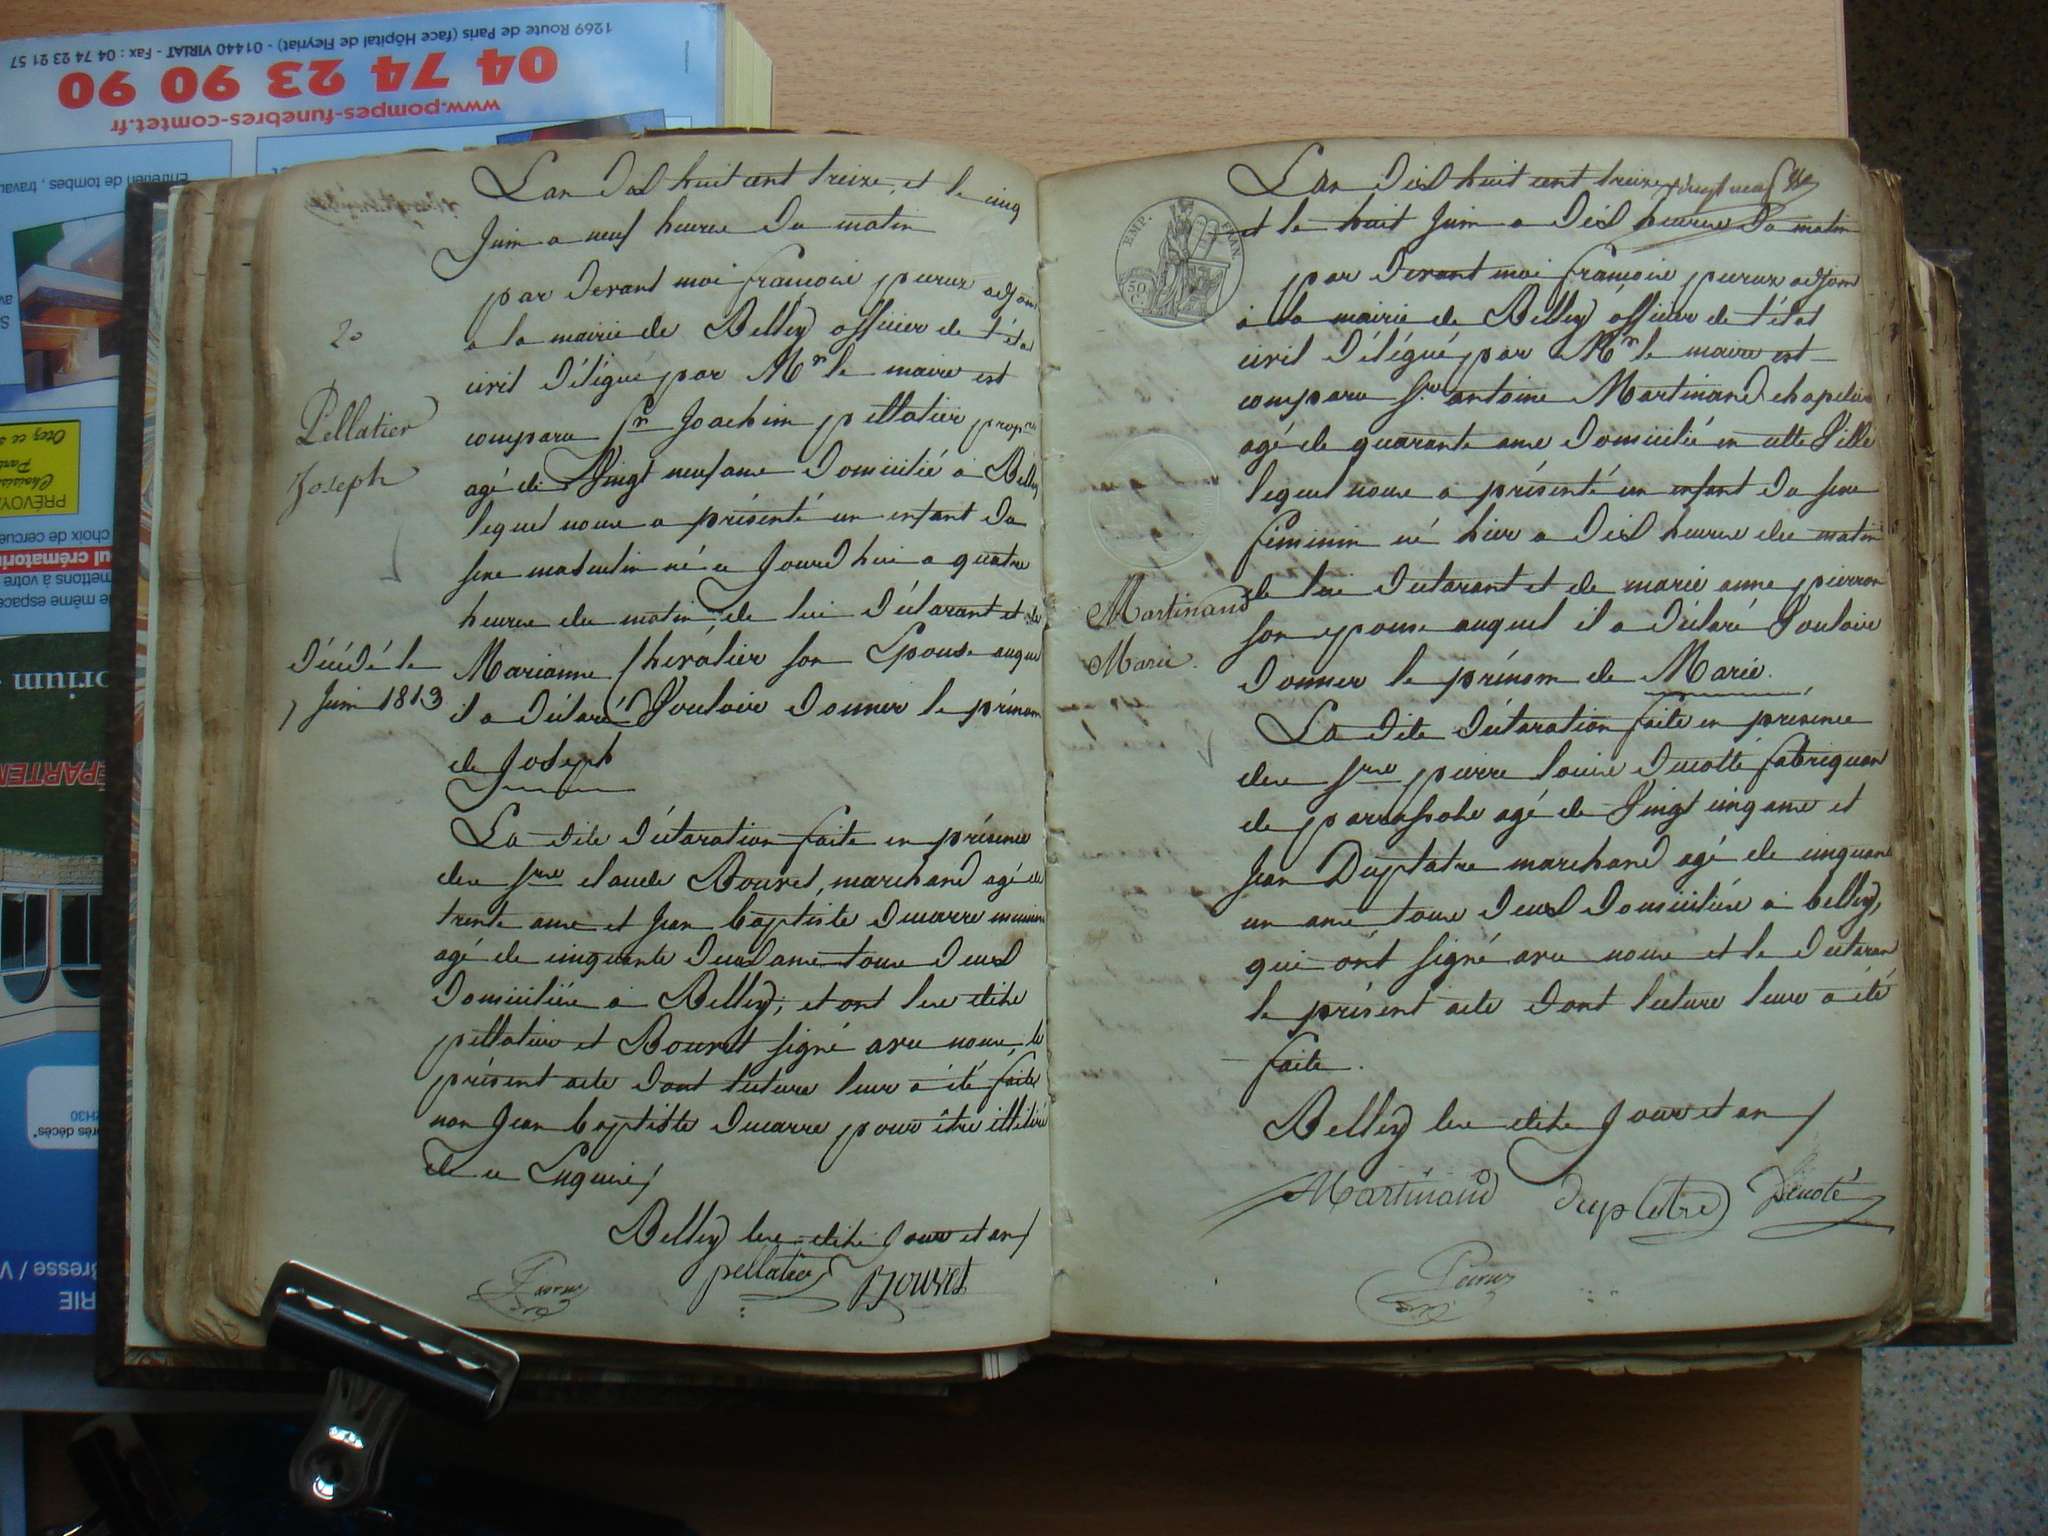 1269 Route de Paris (face Hôpital de Fleyriat) - 01440 VIRIAT - Fax : 04 74 23 21 57
04 74 23 90 90
www.pompes-funebres-comtet.fr
Entretien de tombes, travau
Otez ce s
Choisis
PRÉVOYA
choix de cercue
ul crématori
mettons à votre
le même espace
orium
ÉPARTEM
près décès"
2H30
Bresse / V
RIE
20
Pellatier
Joseph
Décédé le
7 Juin 1813
L'an dix huit cent treize, et le cinq
Juin a neuf heures du matin
par devant moi françois peruz adjoint
a la mairie de Belley officier de l'état
civil délégué par Mr le maire est
comparu Sr Joachim pellatier propre
agé de Vingt neuf ans domicilié a Belley
lequel nous a présenté un enfant du
sexe masculin né a Jourd'hui a quatre
heures du matin, de lui déclarant et de
Marianne Chevalier son Epouse auquel
il a déclaré Vouloir donner le prénom
de Joseph
La dite déclaration faite en présence
des Srs claude Bouvet, marchand agé de
trente ans et Jean baptiste Ducarre
agé de cinquante deux ans tous deux
Domiciliés a Belley, et ont les dits
pellatier et Bouvet signé avec nous le
présent acte dont lecture leur a été faite
non Jean baptiste Ducarre pour être illitéré
de ce Enquis
Belley les dits Jour et an
pellatier Bouvet
Peruz
vingt neuf
EMP. FRAN.
50
C.
Martinand
Marie.
L'an dix huit cent treize
et le huit Juin a dix heures du matin
par devant moi françois peruz adjoint
a la mairie de Belley officier de l'état
civil délégué par Mr le maire est
comparu Sr antoine Martinand chapelier
agé de quarante ans domicilié en cette Ville
lequel nous a présenté un enfant du sexe
féminin né hier a dix heures du matin
de lui déclarant et de marie anne pierron
son epouse auquel il a déclaré Vouloir
donner le prénom de Marie.
La dite déclaration faite en présence
des Srs pierre louis Ducotté fabriquant
de parassols agé de Vingt cinq ans et
Jean Duplatre marchand agé de cinquante
un ans tous deux domiciliés a belley,
qui ont signé avec nous et le déclarant
le présent acte dont lecture leur a été
faite.
Belley les dits Jour et an
Martinand duplatre Ducoté
Peruz